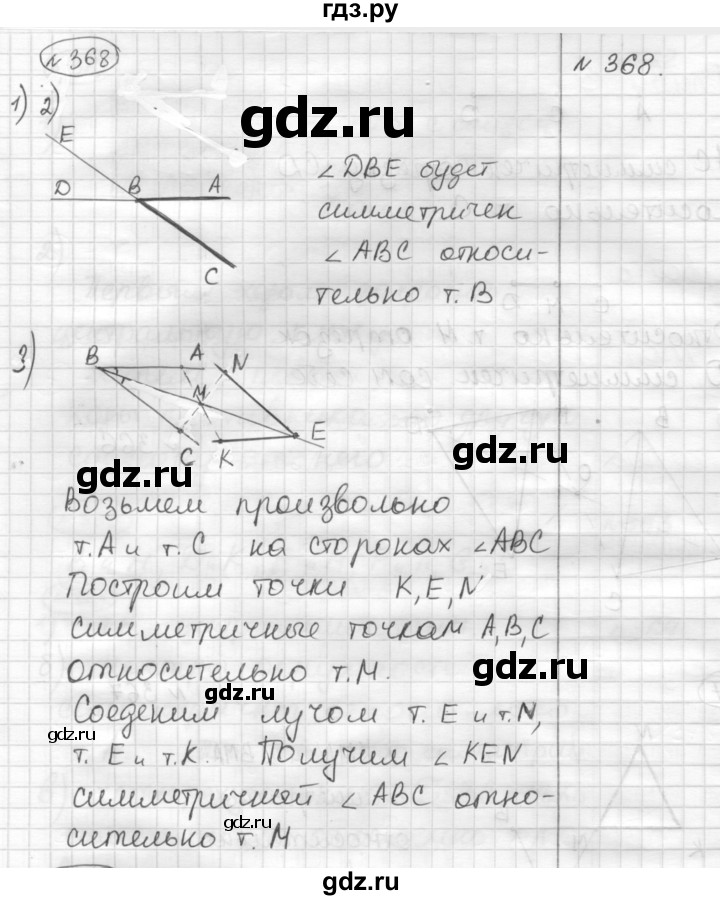 гдз.ру
№ 368
№ 368.
1) 2)
E
D B A
C
gdz.ru
∠DBE будет
симметричен
∠ABC относи-
тельно т. B
3)
B A N
M
C K E
gdz.ru
gdz.ru
Возьмем произвольно
т. A и т. C на сторонах ∠ABC
Построим точки K, E, N
симметричные точкам A, B, C
относительно т. M.
gdz.ru
gdz.ru
Соеденим лучом т. E и т. N,
gdz.ru
т. E и т. K. Получим ∠KEN
симметричной ∠ABC отно-
gdz.ru
сительно т. M
gdz.ru